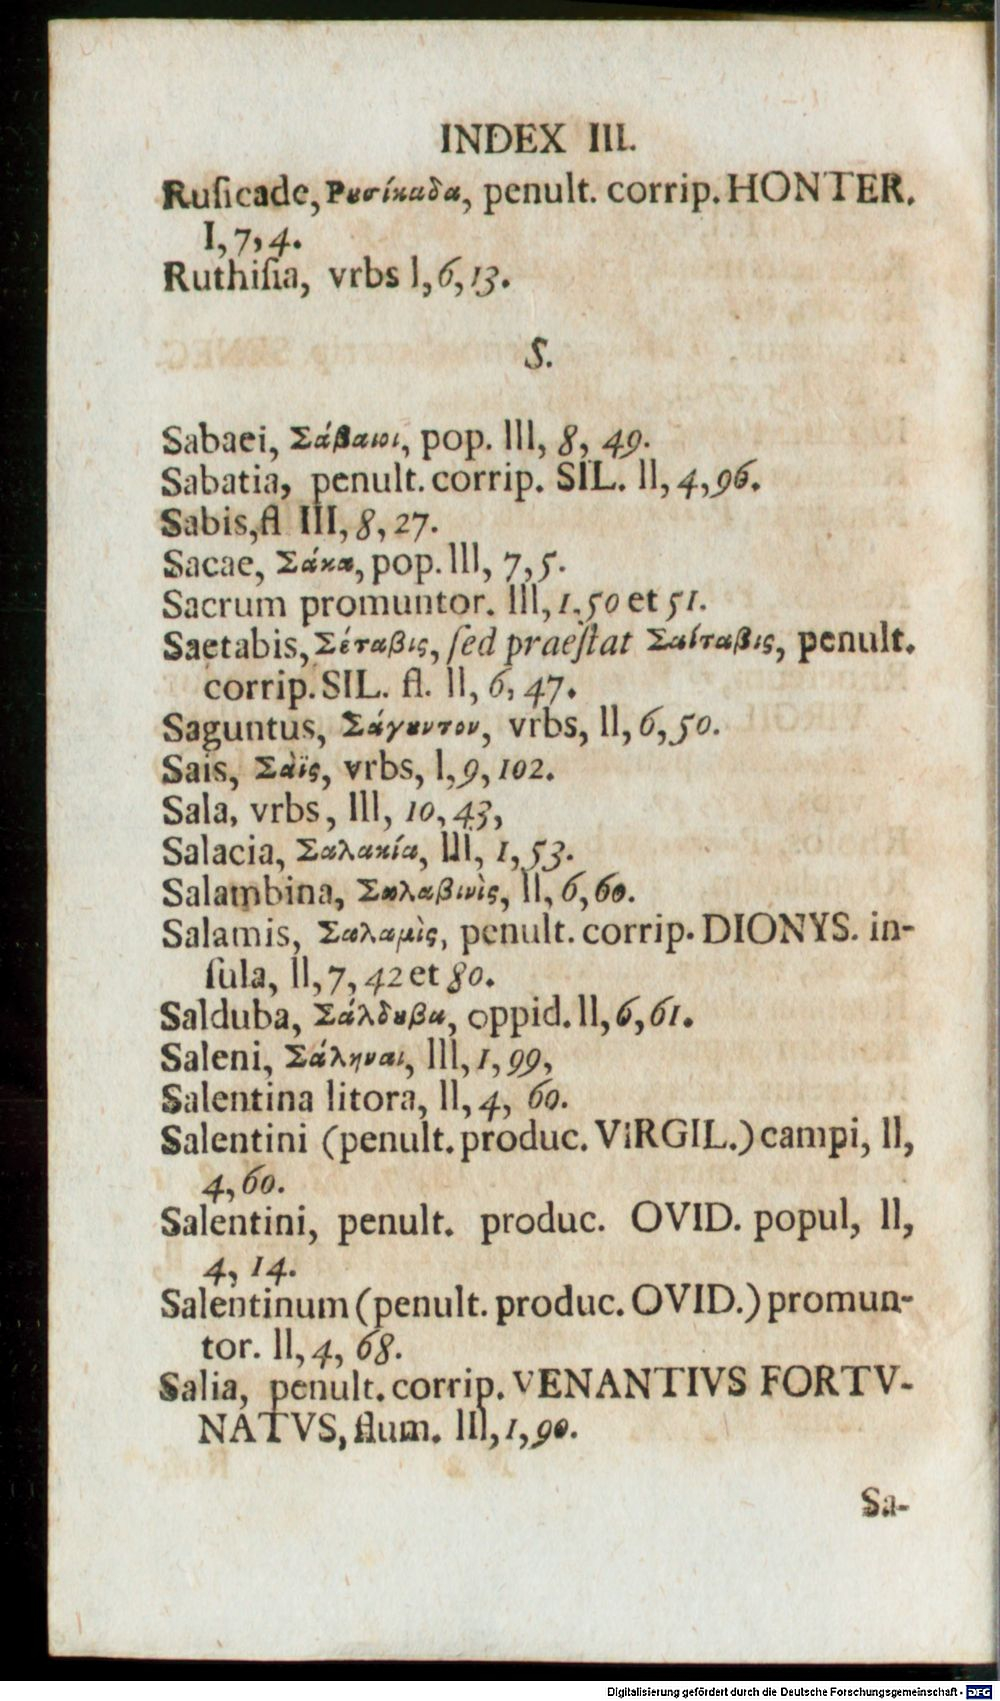 INDEX III.
Ruſicade, Ρȣσίκαδα, penult. corrip. HONTER.
I, 7, 4.
Ruthiſia, vrbs I, 6, 13.
S.
Sabaei, Σάβαιοι, pop. III, 8, 49.
Sabatia, penult. corrip. SIL. II, 4, 96.
Sabis, fl III, 8, 27.
Sacae, Σάκαι, pop. III, 7, 5.
Sacrum promuntor. III, 1, 50 et 51.
Saetabis, Σέταβις, ſed praeſtat Σαίταβις, penult.
corrip. SIL. fl. II, 6, 47.
Saguntus, Σάγȣντον, vrbs, II, 6, 50.
Sais, Σάϊς, vrbs, I, 9, 102.
Sala, vrbs, III, 10, 43,
Salacia, Σαλακία, III, 1, 53.
Salambina, Σαλαβινὶς, II, 6, 60.
Salamis, Σαλαμὶς, penult. corrip. DIONYS. in-
ſula, II, 7, 42 et 80.
Salduba, Σάλδȣβα, oppid. II, 6, 61.
Saleni, Σάληναι, III, 1, 99,
Salentina litora, II, 4, 60.
Salentini (penult. produc. VIRGIL.) campi, II,
4, 60.
Salentini, penult. produc. OVID. popul, II,
4, 14.
Salentinum (penult. produc. OVID.) promun-
tor. II, 4, 68.
Salia, penult. corrip. VENANTIVS FORTV-
NATVS, flum. III, 1, 90.
Sa-
Digitalisierung gefördert durch die Deutsche Forschungsgemeinschaft - DFG